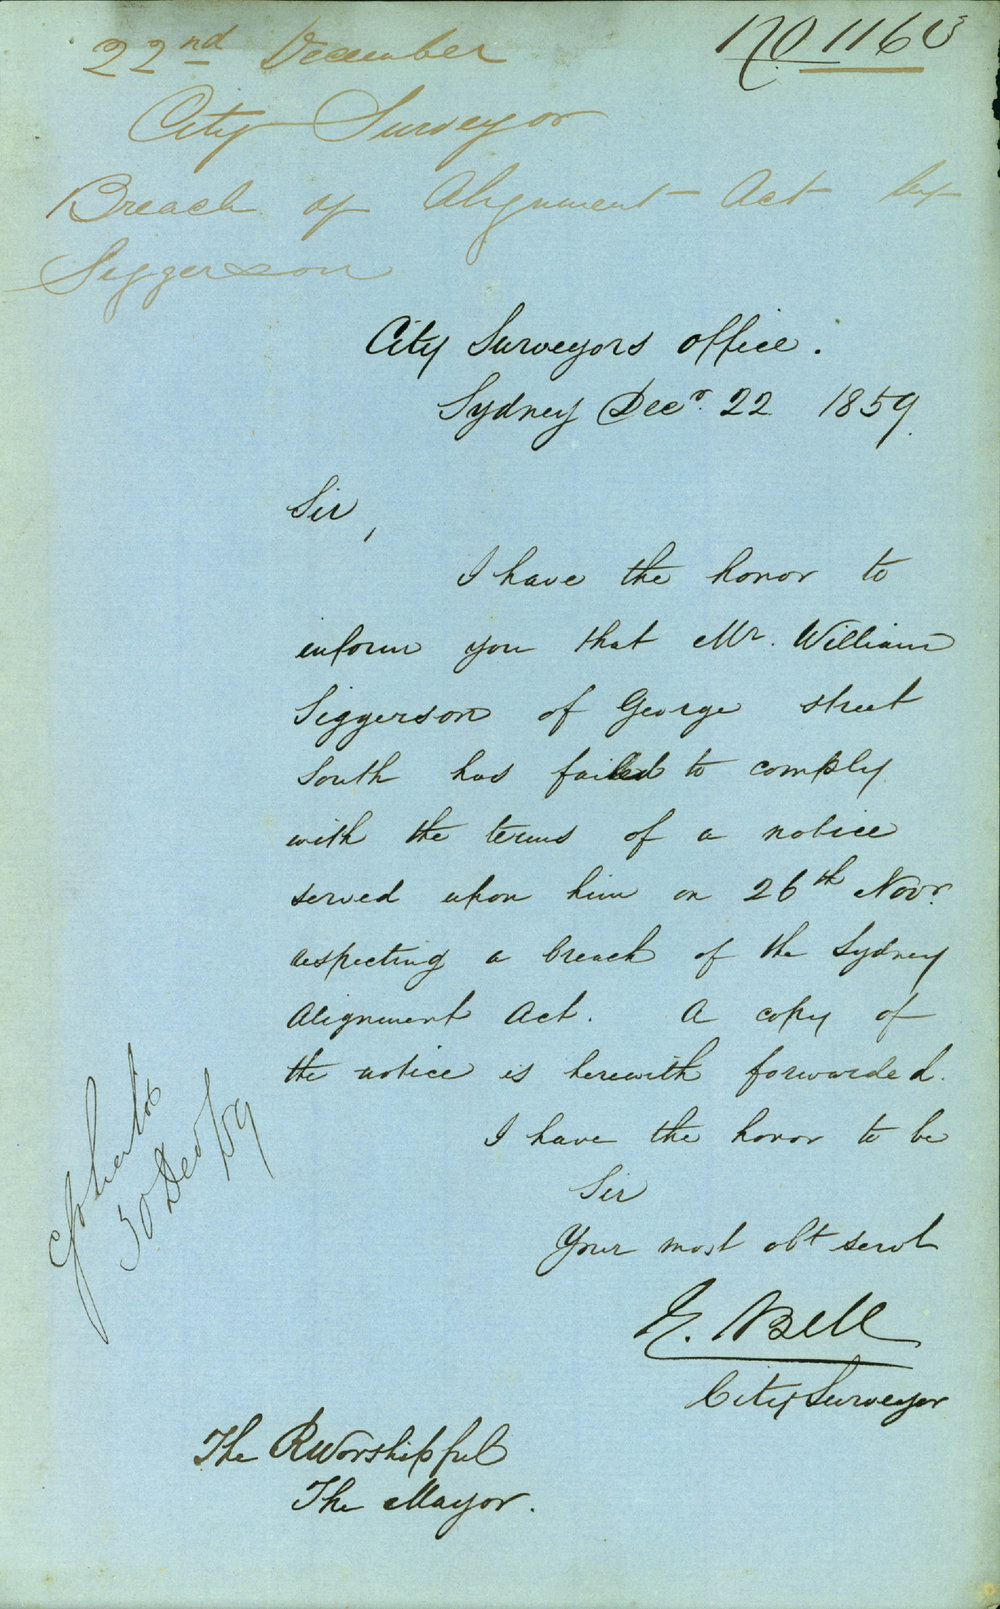 No 1160
22nd December
City Surveyor
Breach of Alignment Act by
Siggerson
City Surveyors office.
Sydney Decr. 22 1859.
Sir,
I have the honor to
inform you that Mr. William
Siggerson of George street
South has failed to comply
with the terms of a notice
served upon him on 26th Novr.
respecting a breach of the Sydney
Alignment Act. A copy of
the notice is herewith forwarded.
I have the honor to be
Sir
Your most obt servt
E. Bell
City Surveyor
The RWorshipful
The Mayor.
30 Dec/59